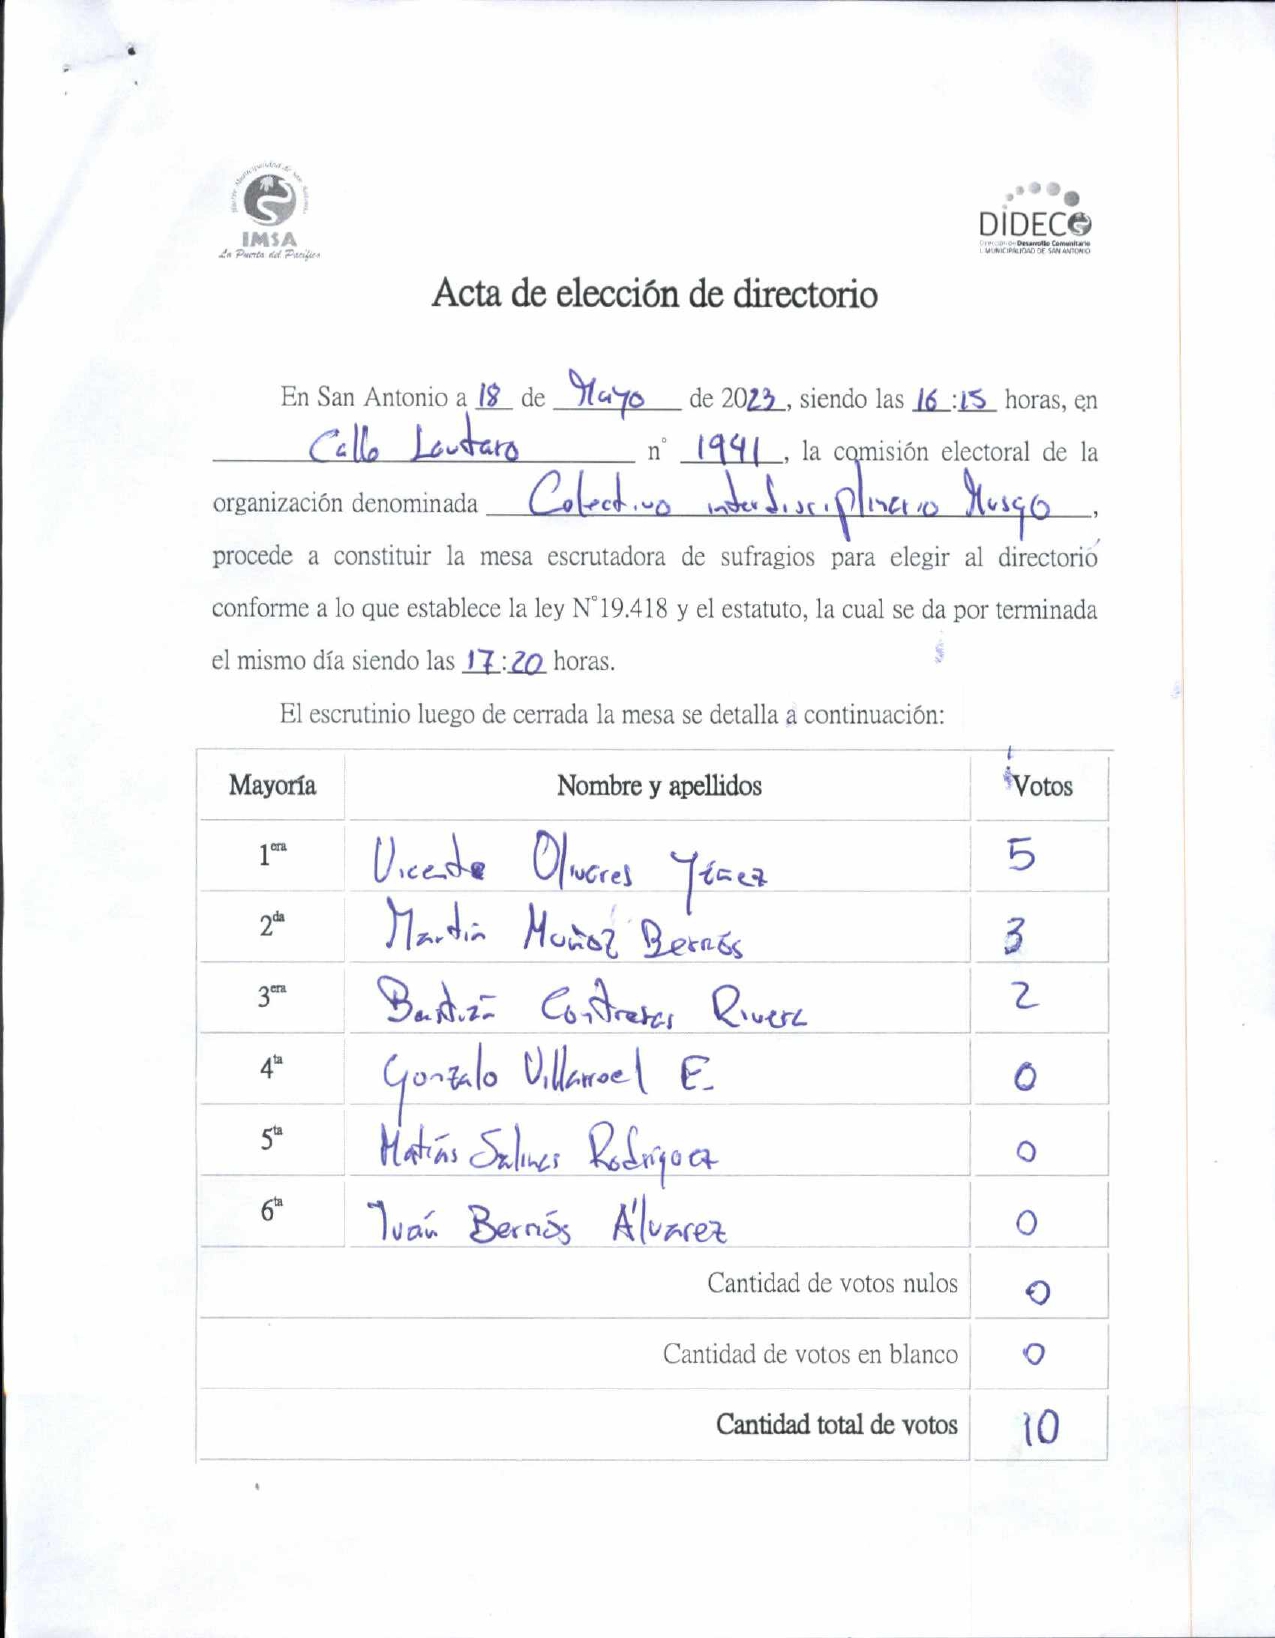 IMSA
La Puerta del Pacífico
DIDECO
Desarrollo Comunitario
I. MUNICIPALIDAD DE SAN ANTONIO
Acta de elección de directorio
En San Antonio a 18 de Mayo de 2023, siendo las 16:15 horas, en
Calle Lautaro n° 1941, la comisión electoral de la
organización denominada Colectivo interdisciplinario Musgo,
procede a constituir la mesa escrutadora de sufragios para elegir al directorio
conforme a lo que establece la ley N°19.418 y el estatuto, la cual se da por terminada
el mismo día siendo las 17:20 horas.
El escrutinio luego de cerrada la mesa se detalla a continuación:
Mayoría Nombre y apellidos Votos
1era Vicente Olivares Yáñez 5
2da Martín Muñoz Bernós 3
3era Bastián Contreras Rivera 2
4ta Gonzalo Villarroel E. 0
5ta Matías Salinas Rodríguez 0
6ta Iván Bernós Álvarez 0
Cantidad de votos nulos 0
Cantidad de votos en blanco 0
Cantidad total de votos 10